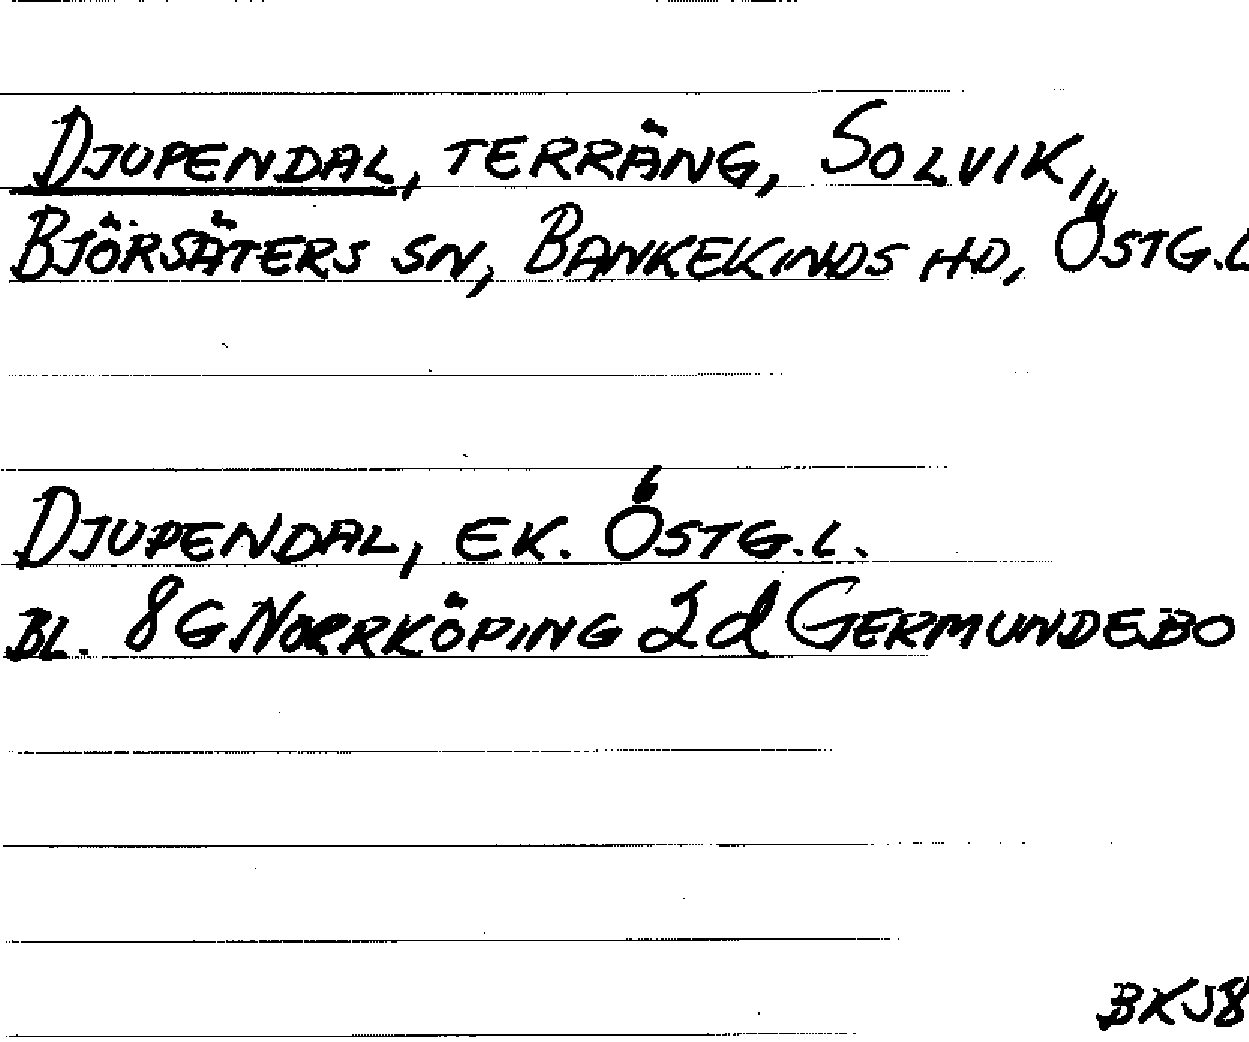 DJUPENDAL, TERRÄNG, SOLVIK,
BJÖRSÄTERS SN, BANKEKINDS HD, ÖSTG.L
DJUPENDAL, EK. ÖSTG.L.
BL. 8G NORRKÖPING 2d GERMUNDEBO
BKJ8